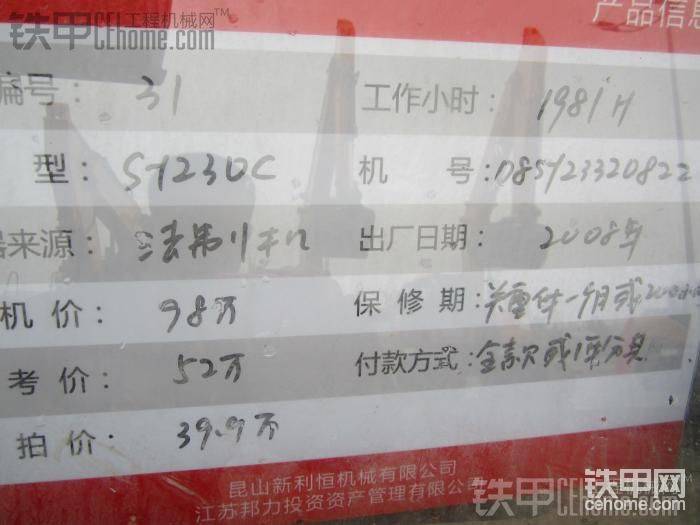 铁甲 工程机械网 CEhome.com
产品信息
编号: 31 工作小时: 1981H
型: SY230C 机 号: 08SY23320822
来源: 法务川机 出厂日期: 2008年
机价: 98万 保修期: 关重件一个月或200小
考价: 52万 付款方式: 全款或1年分具
拍价: 39.9万
昆山新利恒机械有限公司
江苏邦力投资资产管理有限公司
铁甲网 CEhome.com